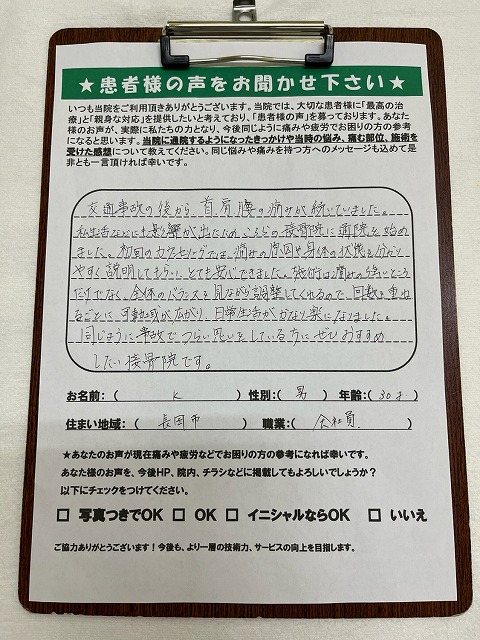 ★患者様の声をお聞かせ下さい★
いつも当院をご利用頂きありがとうございます。当院では、大切な患者様に「最高の治
療」と「親身な対応」を提供したいと考えており、「患者様の声」を募っております。あなた
様のお声が、実際に私たちの力となり、今後同じように痛みや疲労でお困りの方の参考
になると思います。当院に通院するようになったきっかけや当時の悩み、痛む部位、施術を
受けた感想について教えてください。同じ悩みや痛みを持つ方へのメッセージも込めて是
非とも一言頂ければ幸いです。
交通事故の後から首肩腰の痛みが続いていました。
私生活などにも影響が出たため、こちらの接骨院に通院を始め
ました。初回のカウンセリングでは、痛みの原因や身体の状態を分かり
やすく説明してもらい、とても安心できました。施術は痛みの強いところ
だけでなく、全体のバランスを見ながら調整してくれるので、回数を重ね
るごとに可動域が広がり、日常生活がかなり楽になりました。
同じように事故でつらい思いをしている方にぜひおすすめ
したい接骨院です。
お名前：（ K ） 性別：（ 男 ） 年齢：（ 30才 ）
住まい地域：（ 長岡市 ） 職業：（ 会社員 ）
★あなたのお声が現在痛みや疲労などでお困りの方の参考になれば幸いです。
あなた様のお声を、今後HP、院内、チラシなどに掲載してもよろしいでしょうか？
以下にチェックをつけてください。
□ 写真つきでOK □ OK □ イニシャルならOK □ いいえ
ご協力ありがとうございます！今後も、より一層の技術力、サービスの向上を目指します。